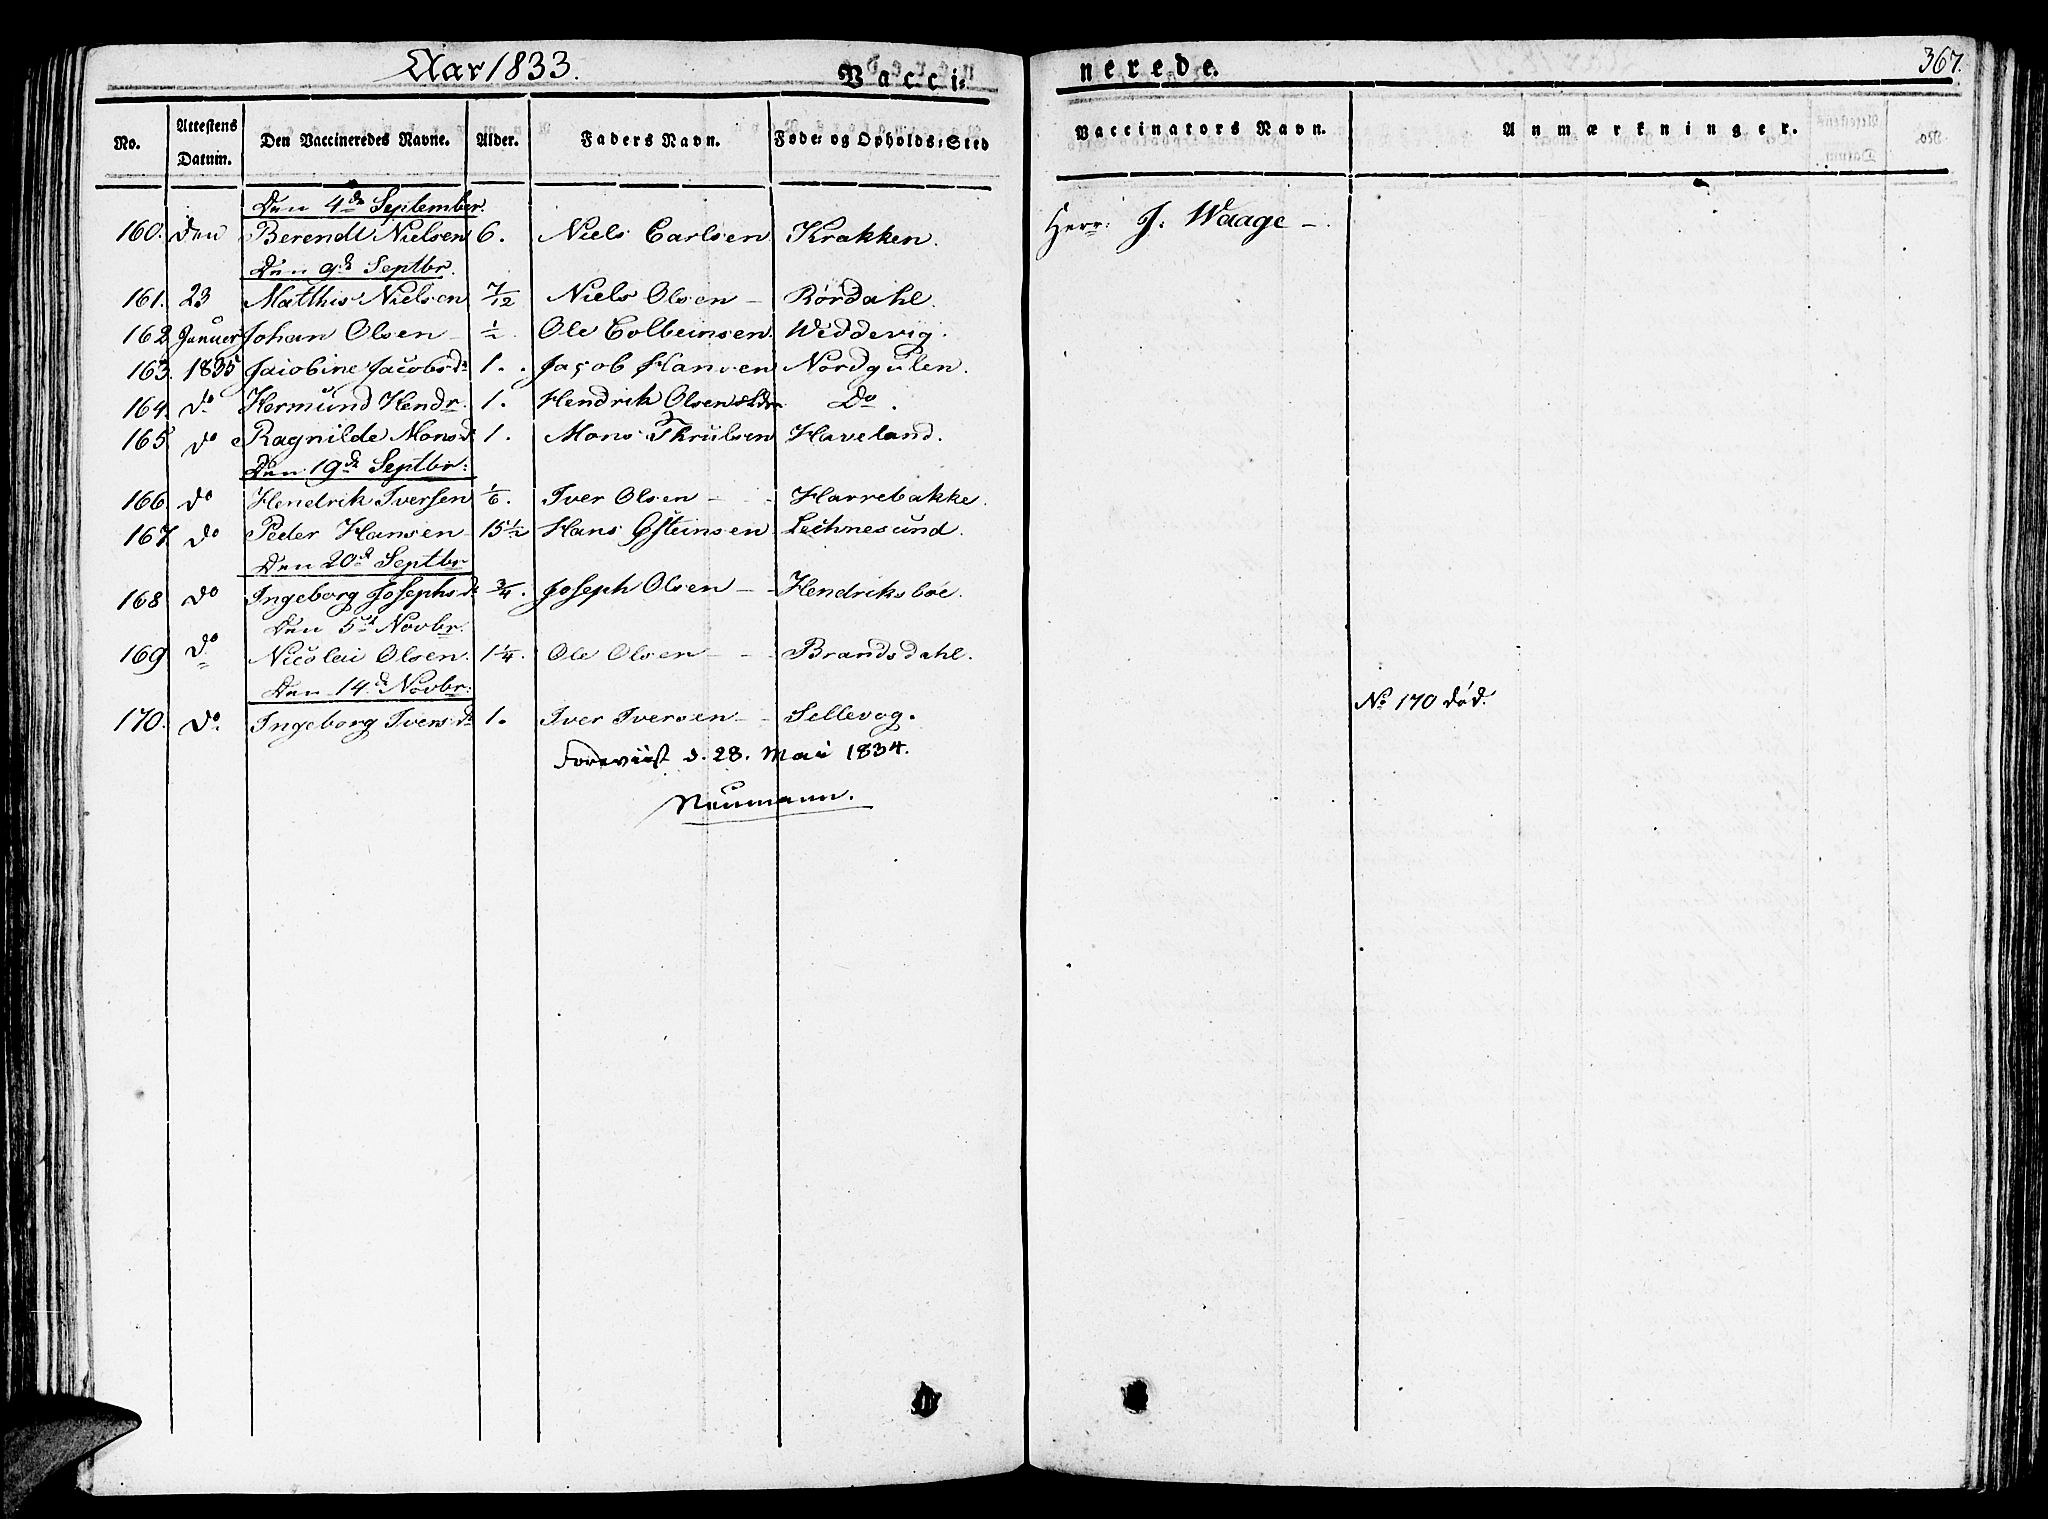 Aar 1833.
Vacci-
nerede.
367.
No.
Attestens Datum.
Den Vaccineredes Navne.
Alder.
Faders Navn.
Føde- og Opholds-Sted
Vaccinators Navn.
Anmærkninger.
Den 4de September.
160. Den Berendt Nielsen 6. Niels Carlsen Krakken. Herr: J. Waage –.
Den 9de Septbr.
161. 23 Mathis Nielsen 7/12 Niels Olsen – Rørdahl.
162 Januer Johan Olsen – ½. Ole Colbeinsen. Widdevig.
163. 1835 Jaiobine Jacobsdr 1. Jacob Hansen Nordgulen.
164 do Hermund Hendr. 1. Hendrik Olsen Do.
165 do Ragnilde Monsd 1. Mons Thrulsen Haveland.
Den 19de Septbr:
166 do Hendrik Iversen 1/6. Iver Olsen – Harrebakke.
167 do Peder Hansen – 15½ Hans Østeinsen Leihnesund.
Den 20de Septbr
168 do Ingeborg Josephsd ¾. Joseph Olsen – Hendriksbøe.
Den 5te Novbr.
169 do Nicolai Olsen. 1¼. Ole Olsen – Brandsdahl.
Den 14de Novbr:
170. do. Ingeborg Ivers dr 1. Iver Iversen – Sellevog.
No 170 død.
Foreviist d. 28. Mai 1834.
Neumann.